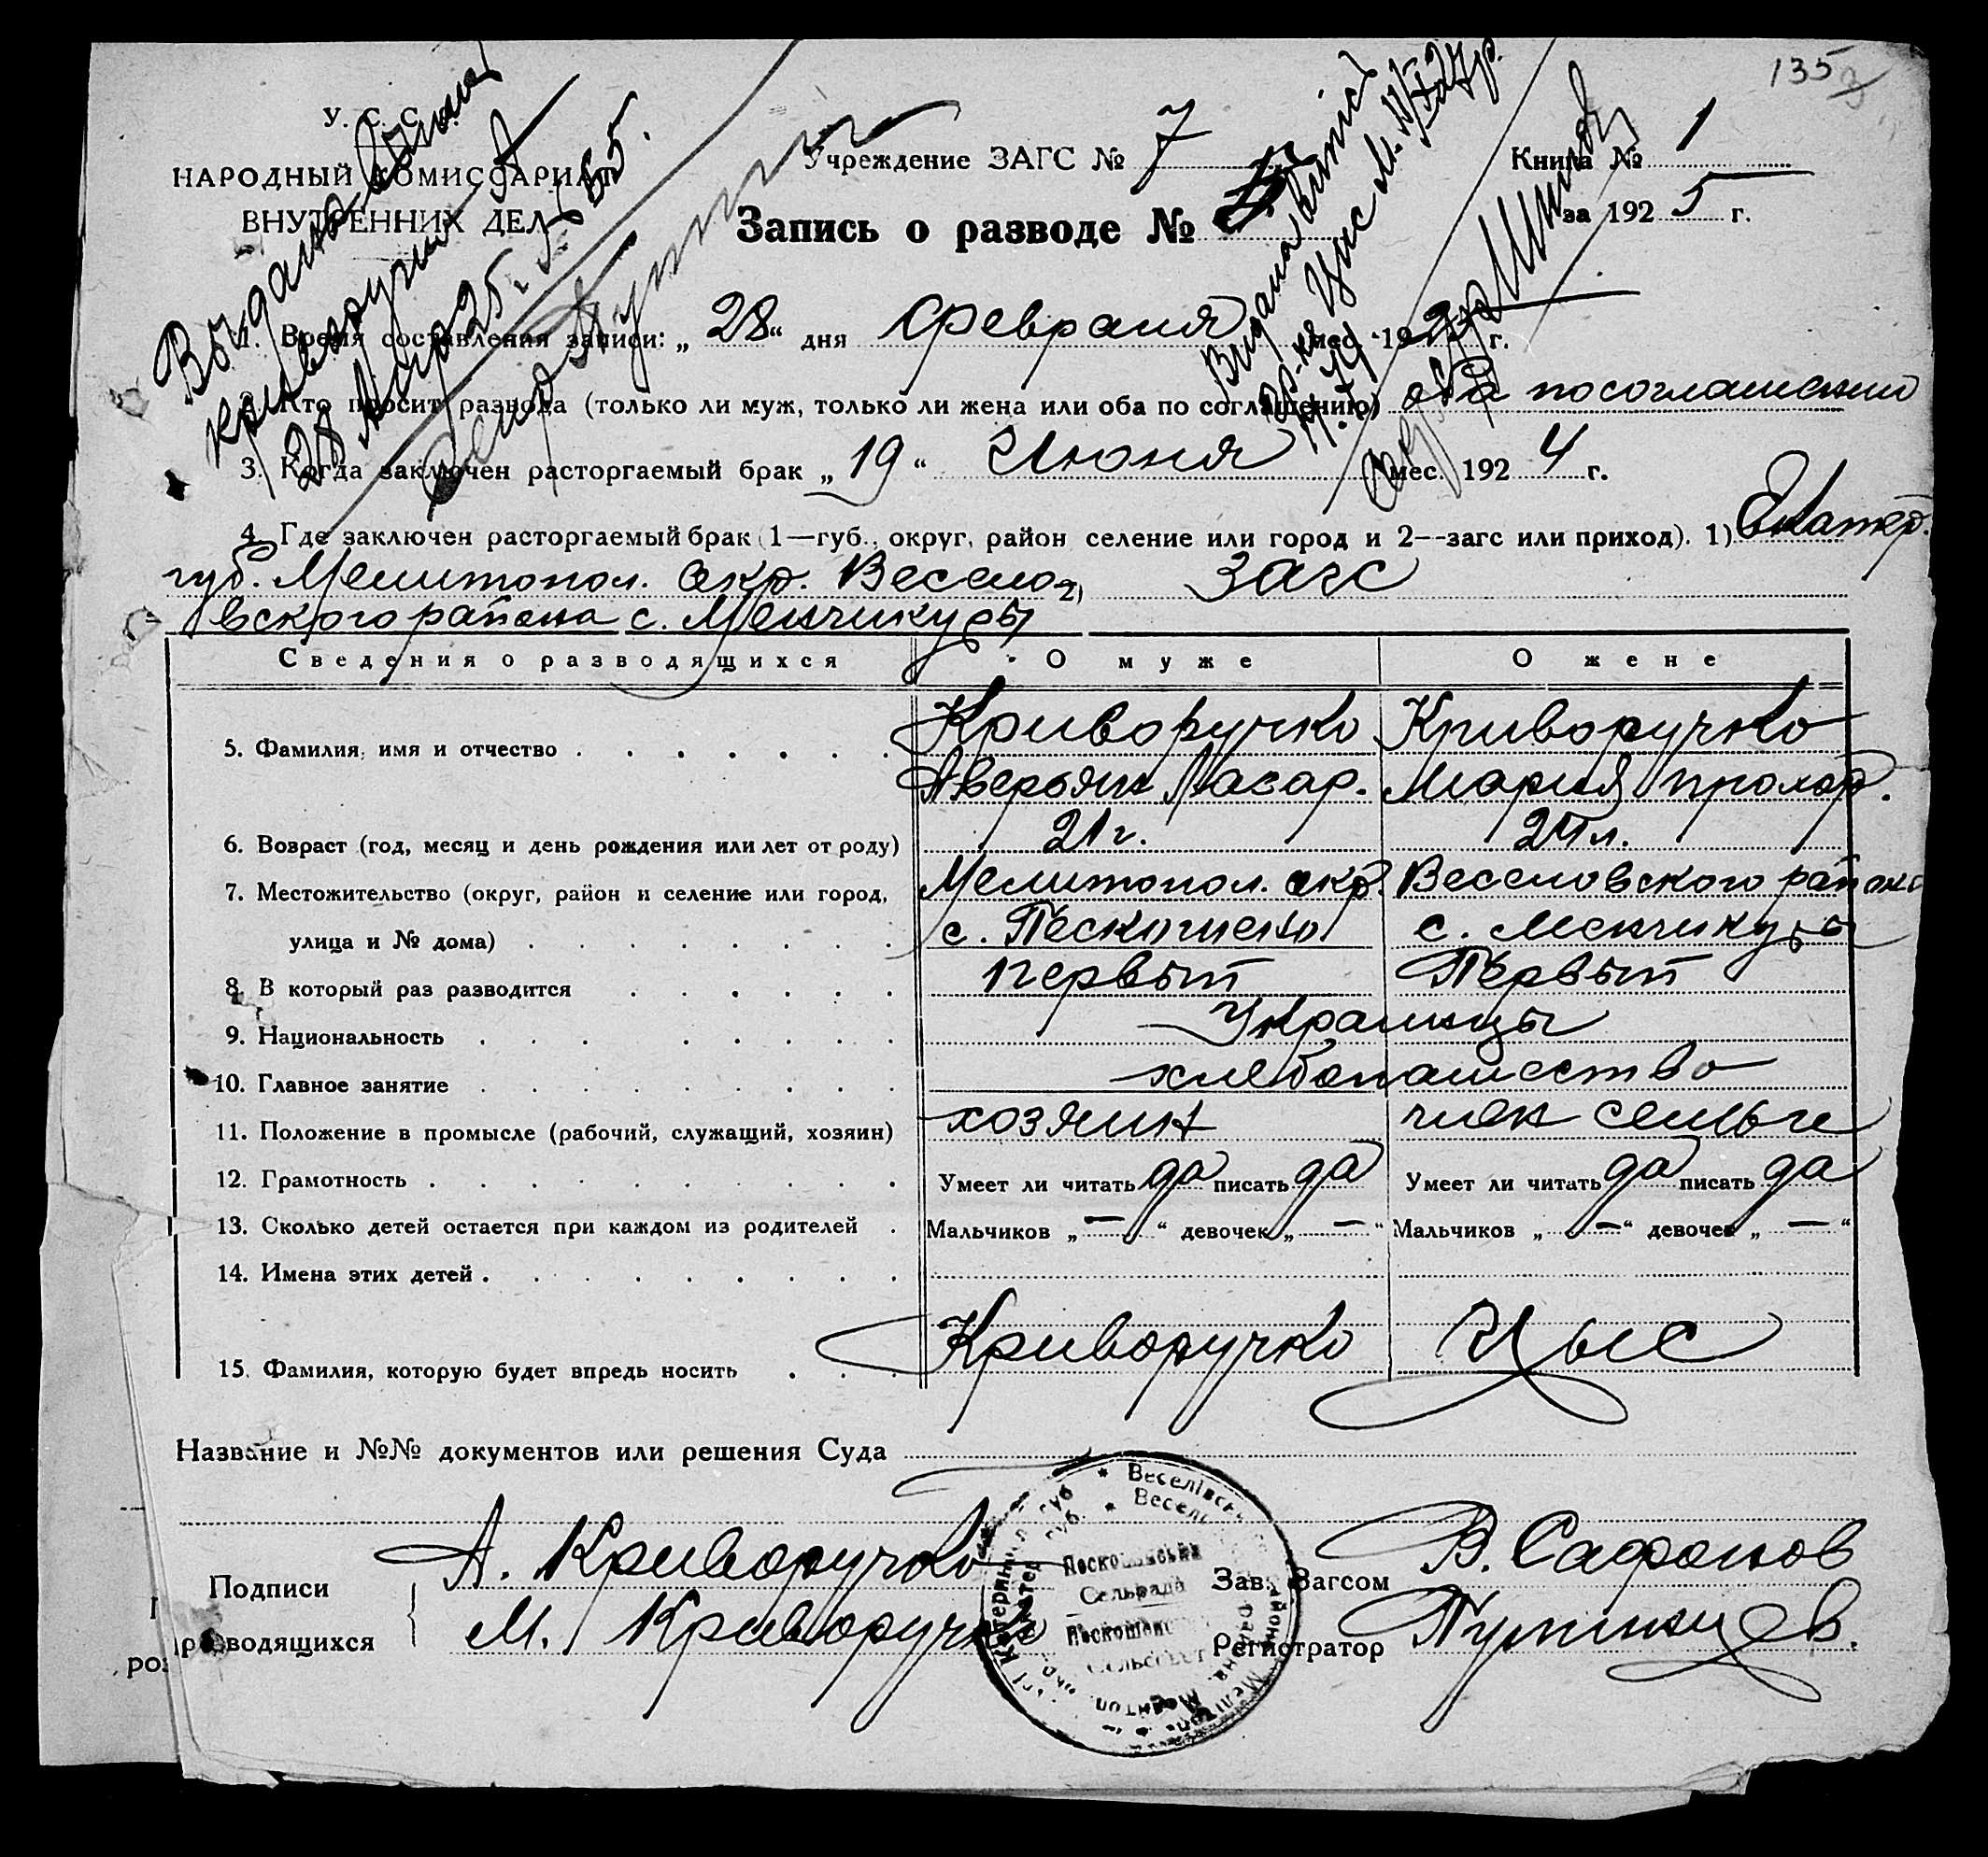 135
У. С. С.
НАРОДНЫЙ КОМИССАРИАТ
ВНУТРЕННИХ ДЕЛ
Учреждение ЗАГС № 7
Книга № 1
за 1925 г.
Запись о разводе №
Выдана
28 Апр 25 г. № 655.
Видана
Цис М.
1. Время составления записи: „28“ дня Февраля мес. 192 г.
2. Кто просит развода (только ли муж, только ли жена или оба по соглашению) оба по соглашению
3. Когда заключен расторгаемый брак „19“ Июня мес. 1924 г.
4. Где заключен расторгаемый брак (1—губ., округ, район селение или город и 2--загс или приход). 1) Екатер.
губ. Мелитопол. окр. Весело- 2) Загс
вского района с. Менчикуры
Сведения о разводящихся О муже О жене
5. Фамилия, имя и отчество Криворучко Криворучко
Аверьян Лазар. Мария Прохор.
6. Возраст (год, месяц и день рождения или лет от роду) 21 г. 24 л.
7. Местожительство (округ, район и селение или город, Мелитопол. окр. Веселовского района
улица и № дома) с. Пескошено с. Менчикуры
8. В который раз разводится первый Первый
9. Национальность Украинцы
10. Главное занятие хлебопашество
11. Положение в промысле (рабочий, служащий, хозяин) хозяин член семьи
12. Грамотность Умеет ли читать да писать да Умеет ли читать да писать да
13. Сколько детей остается при каждом из родителей Мальчиков „—“ девочек „—“ Мальчиков „—“ девочек „—“
14. Имена этих детей
15. Фамилия, которую будет впредь носить Криворучко Цыс
Название и №№ документов или решения Суда
Подписи разводящихся
А. Криворучко
М. Криворучко
Зав. Загсом В. Сафонов
Регистратор
Сельрада